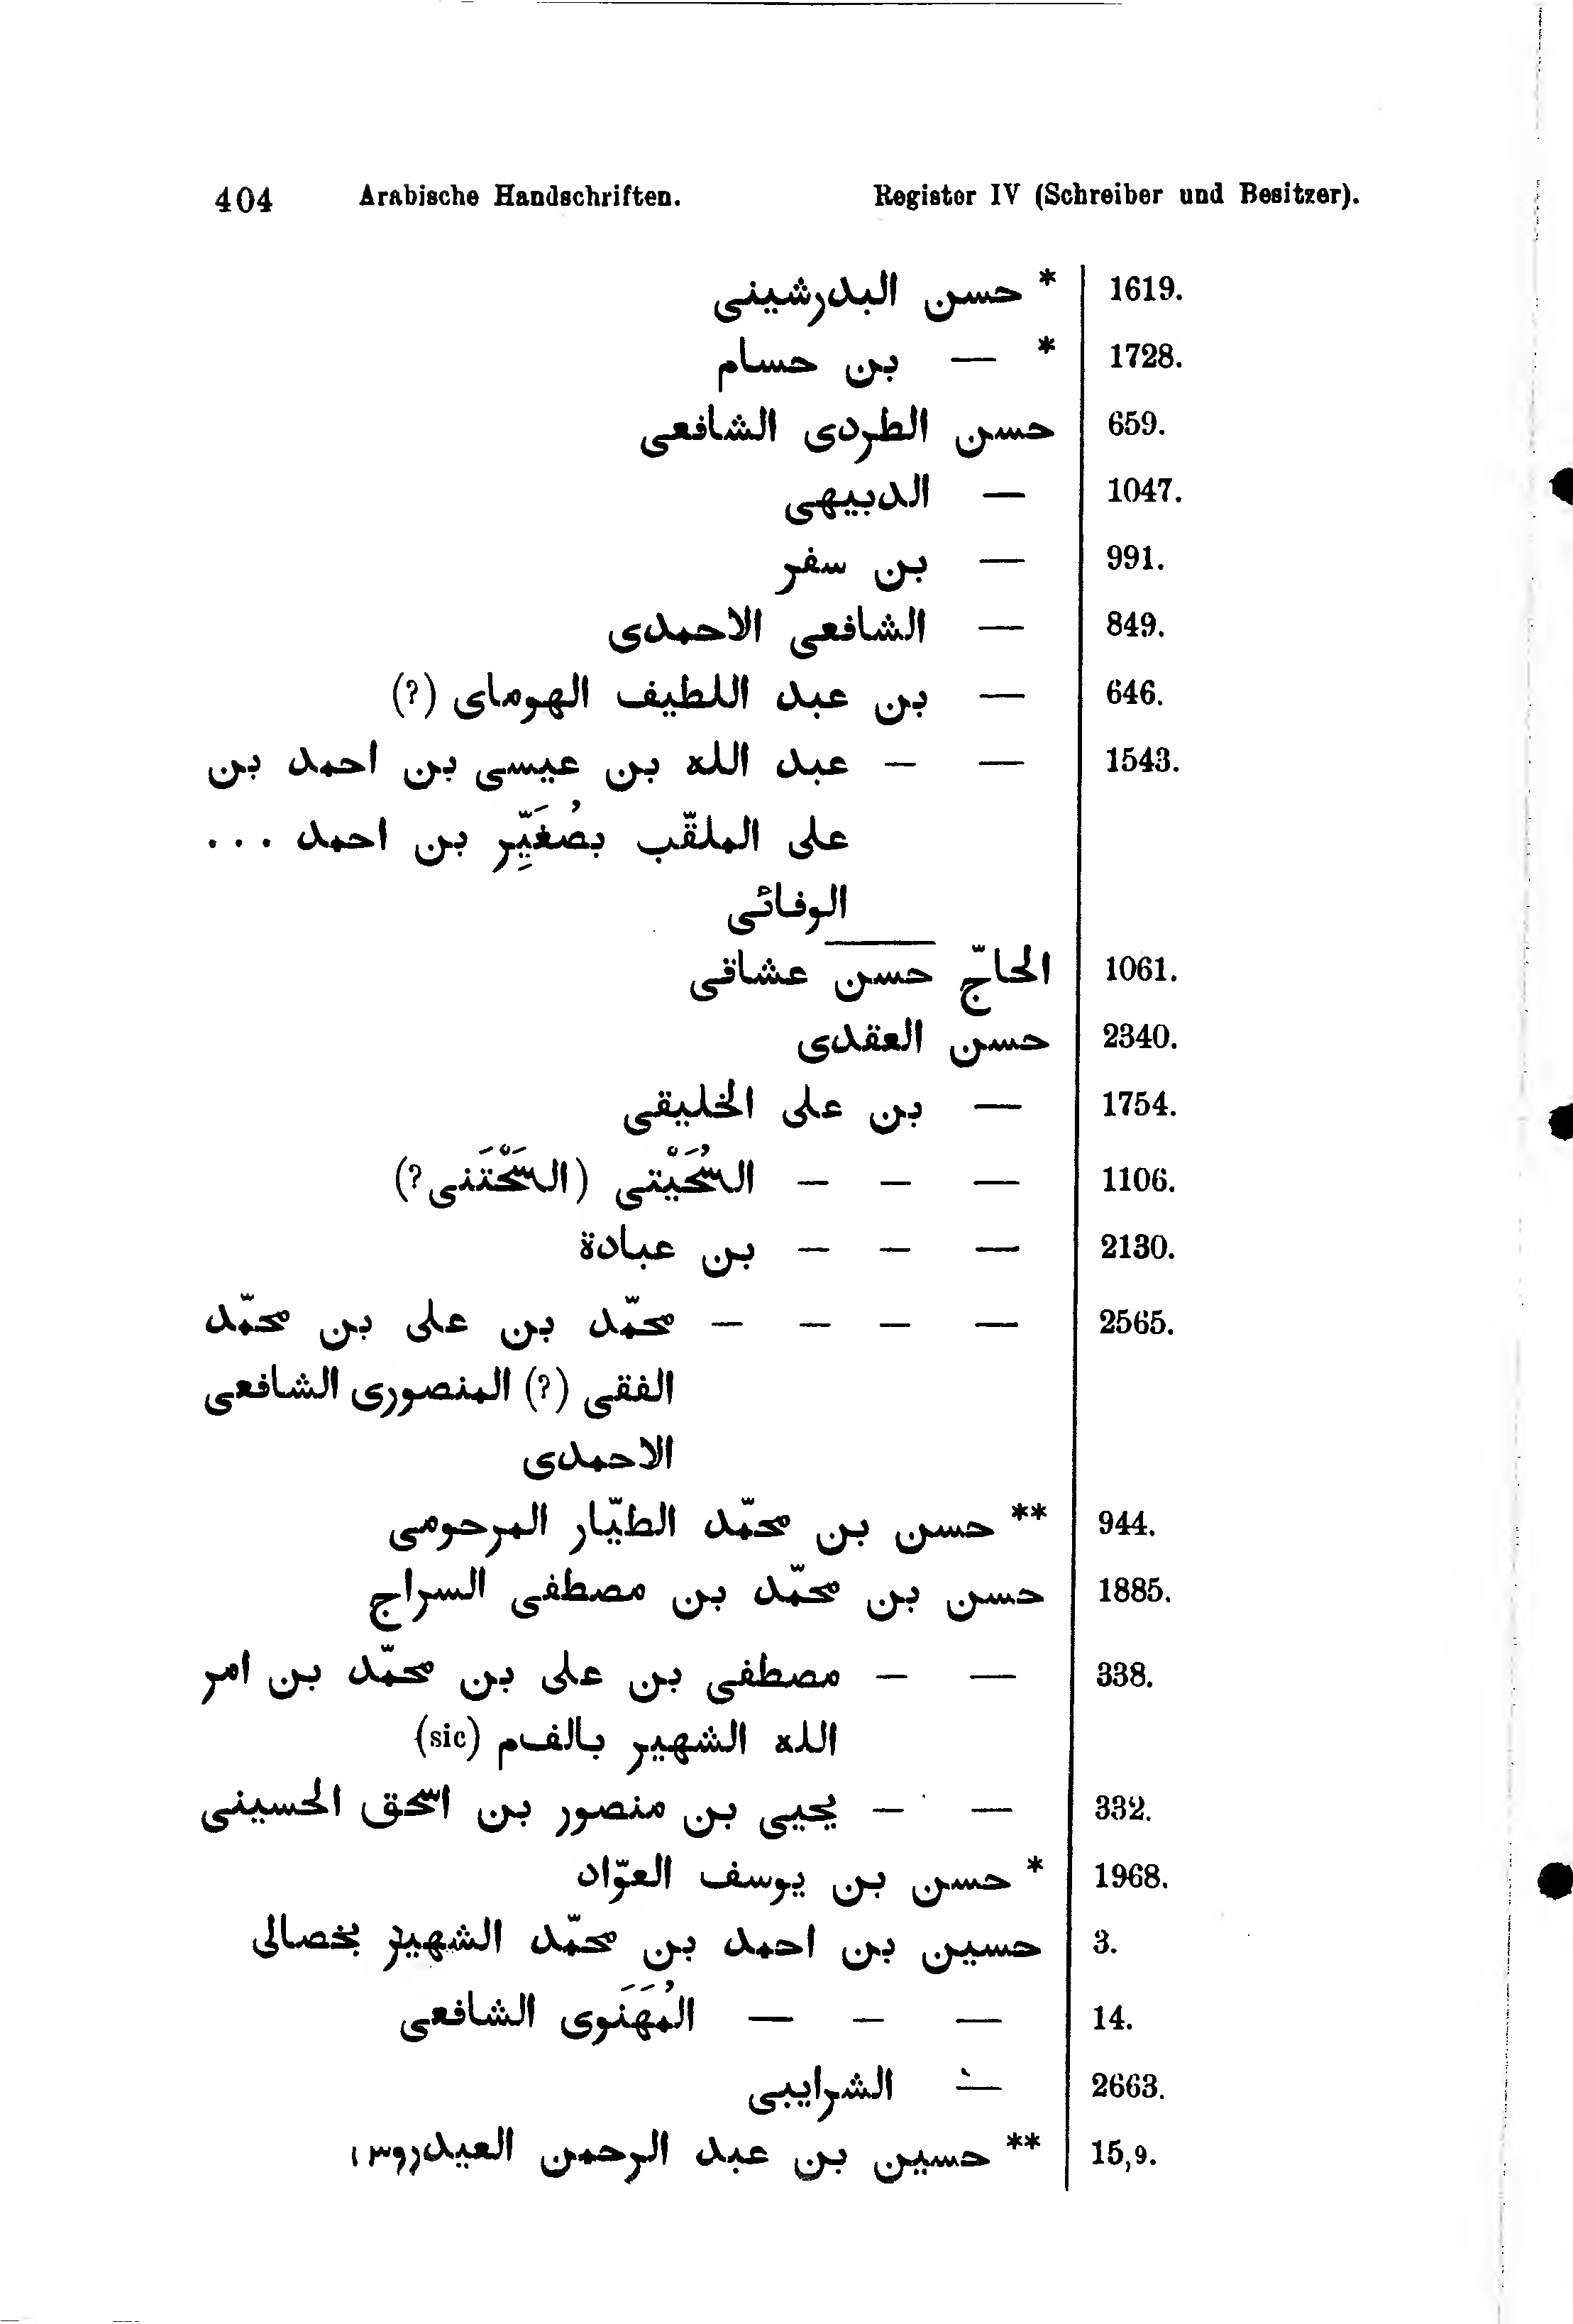 404 Arabische Handschriften. Register IV (Schreiber und Besitzer).
* حسن البدرشينى 1619.
* — بن حسام 1728.
حسن الطردى الشافعى 659.
— الدبيهى 1047.
— بن سفر 991.
— الشافعى الاحمدى 849.
— بن عبد اللطيف الهوماى (?) 646.
— — عبد الله بن عيسى بن احمد بن 1543.
على الملقّب بصُغَيِّر بن احمد ...
الوفائى
الحاجّ حسن عشاقى 1061.
حسن العقدى 2340.
— بن على الخليقى 1754.
— — — السُحَيْتى (السَحْتَنى?) 1106.
— — — بن عبادة 2130.
— — — — محمّد بن على بن محمّد 2565.
الفقى (?) المنصورى الشافعى
الاحمدى
** حسن بن محمّد الطيّار المرحومى 944.
حسن بن محمّد بن مصطفى السراج 1885.
— — مصطفى بن على بن محمّد بن امر 338.
الله الشهير بالفم (sic)
— — يحيى بن منصور بن اسحق الحسينى 332.
* حسن بن يوسف العوّاد 1968.
حسين بن احمد بن محمّد الشهير بخصالى 3.
— — — المُهَنَوى الشافعى 14.
— الشرايبى 2663.
** حسين بن عبد الرحمن العيدروس 15,9.